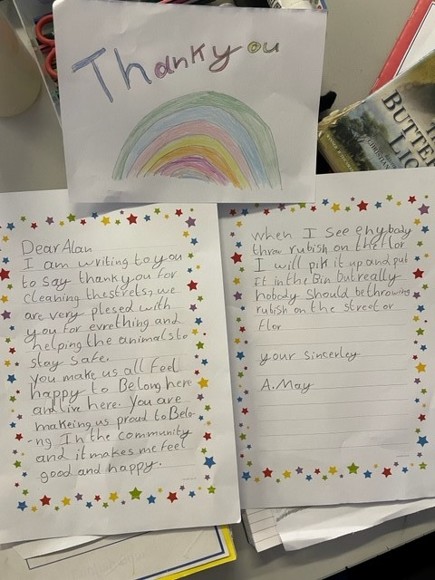 Thank you
THE
BUTTER
LIO
Dear Alan
I am writing to you
to say thank you for
cleaning thestrets, we
are very plesed with
you for evrething and
helping the animals to
stay safe.
you make us all feel
happy to Belong here
and live here. You are
makeing us proud to Belo-
ng In the community
and it makes me feel
good and happy.
when I see enybody
throw rubish on the flor
I will pik it up and put
It in the Bin but really
nobody should be throwing
rubish on the street or
flor
your sincerley
A. May